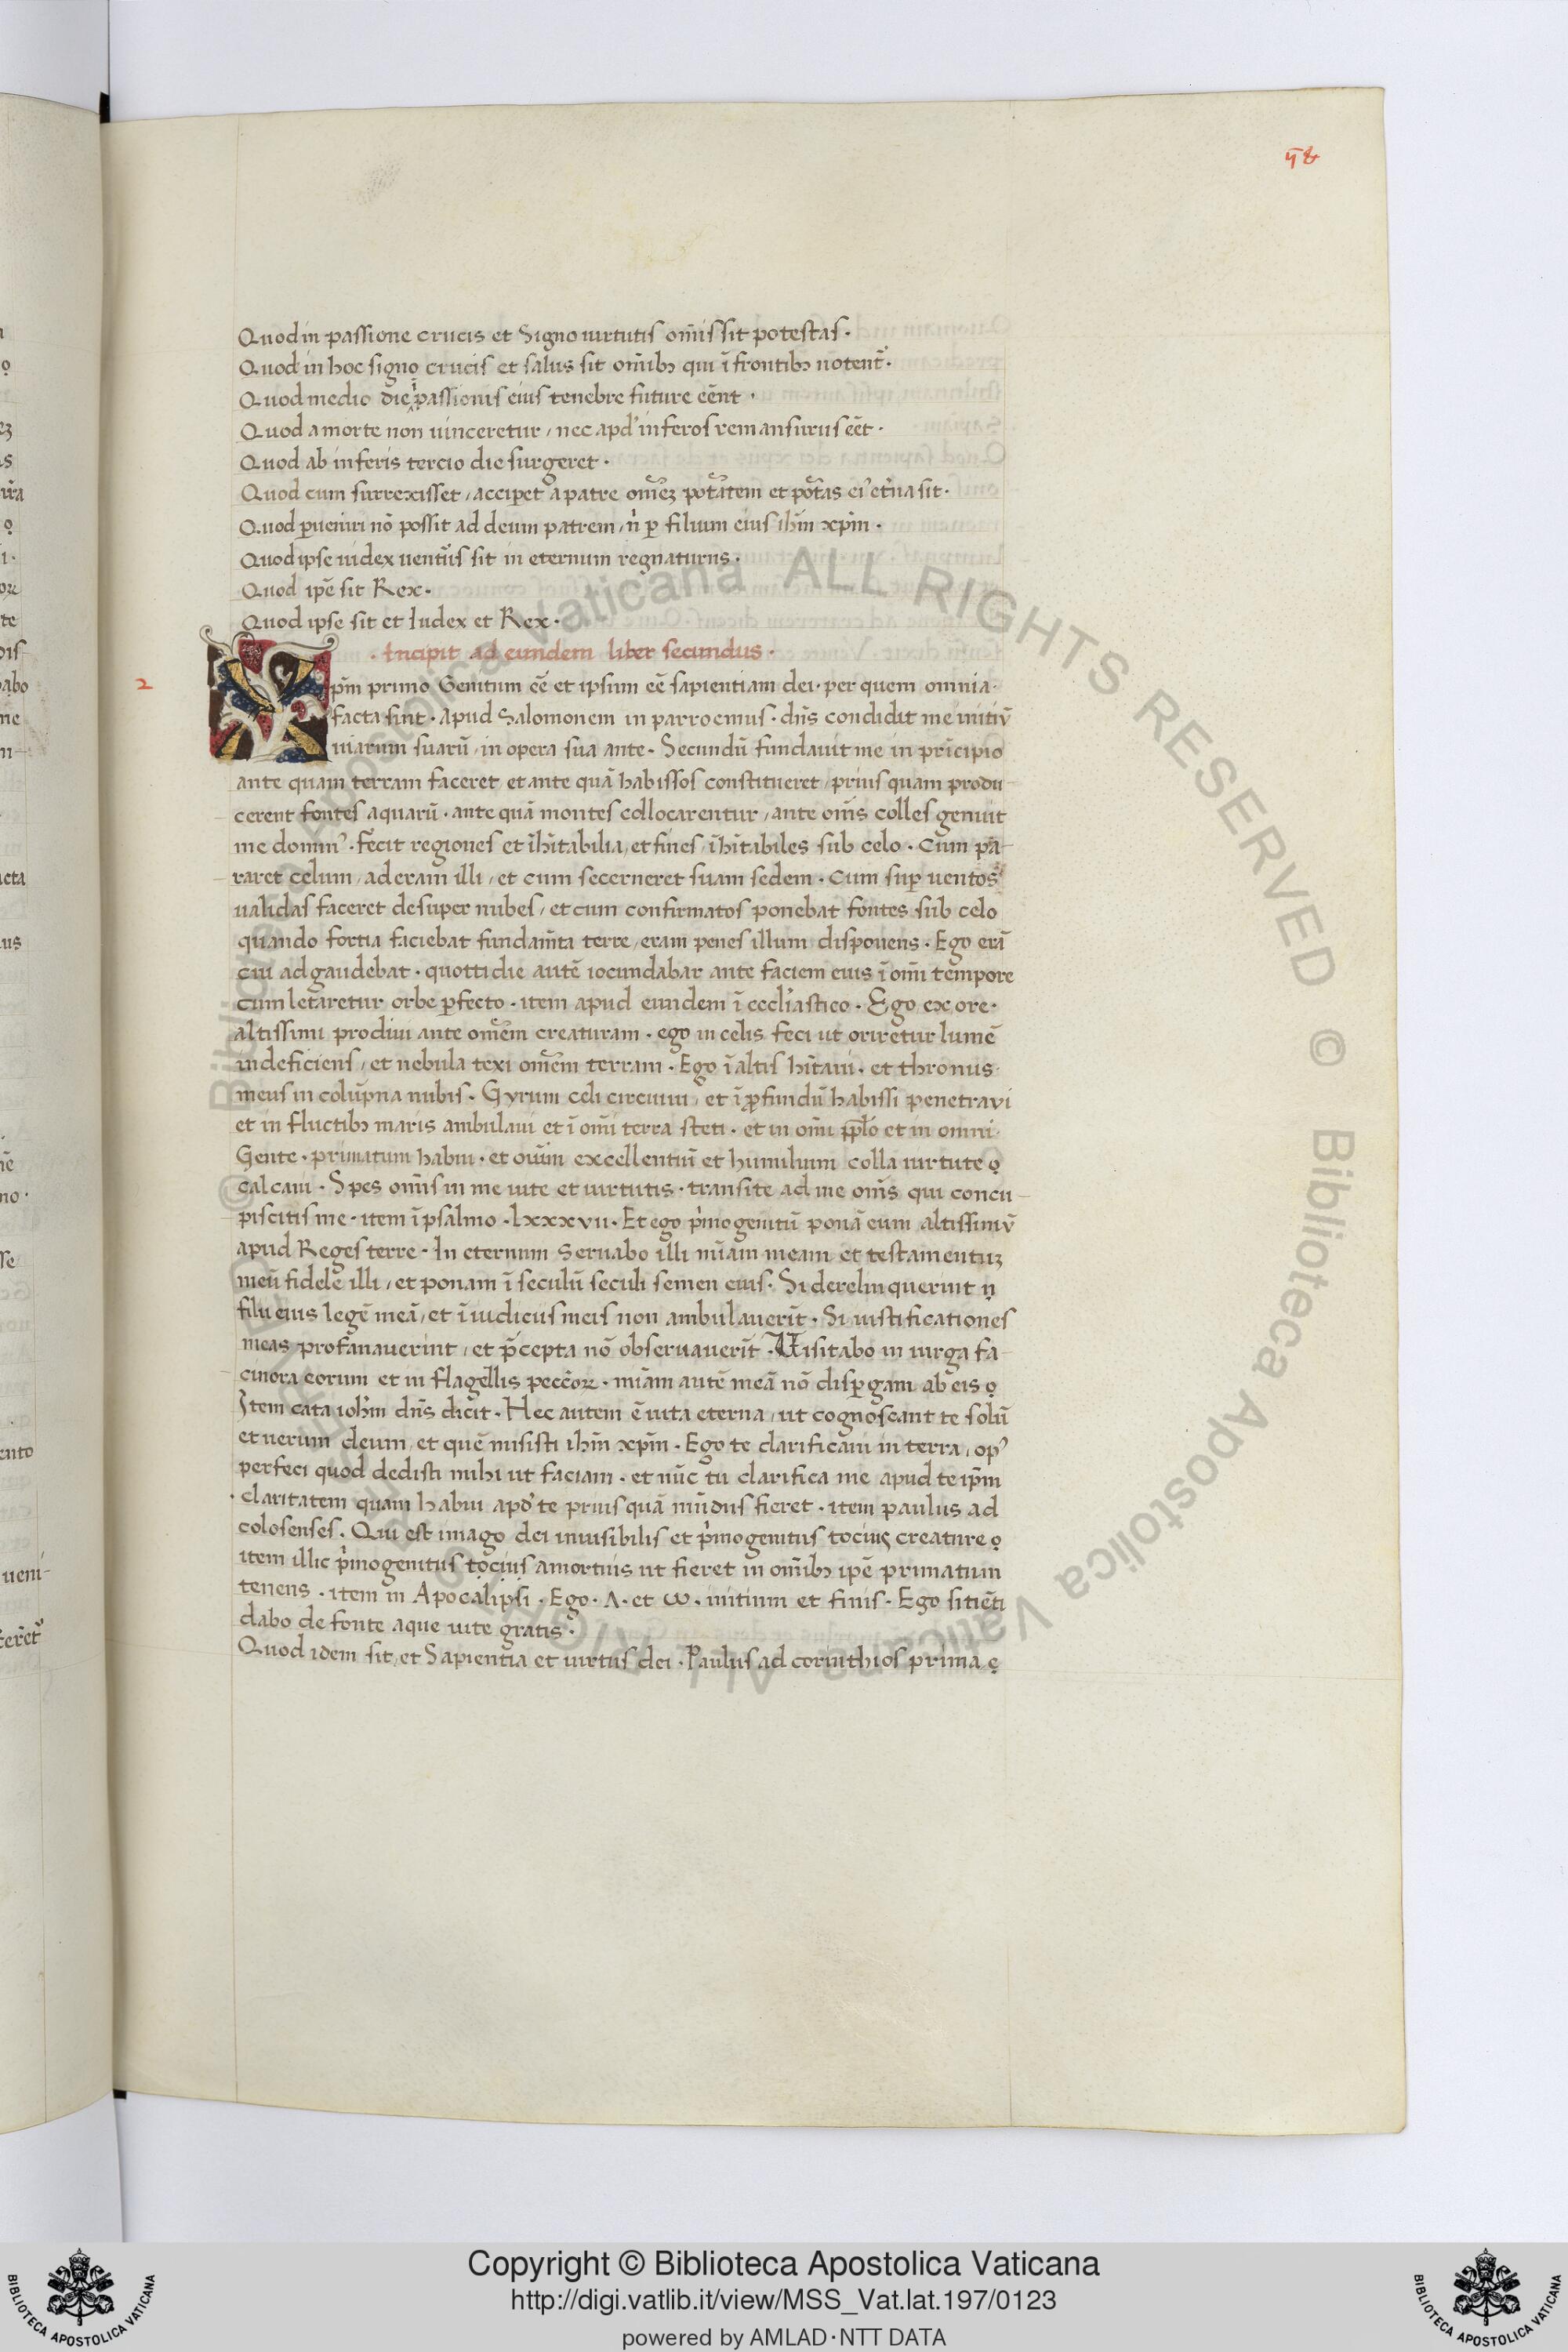 58
Quod in passione crucis et Signo uirtutis om̄is sit potestas·
Quod in hoc signo crucis et salus sit om̄ibꝫ qui ī frontibꝫ notent᷑·
Quod medio die passionis eius tenebre future eēnt·
Quod a morte non uinceretur, nec apd' inferos remansurus eēt·
Quod ab inferis tercio die surgeret·
Quod cum surrexisset, acciperet a patre om̄eꝫ potātem et potās ei' et̄na sit·
Quod ꝑueniri nō possit ad deum patrem, n̄ ꝑ filium eius ihm̄ xpm̄·
Quod ipse iudex uentus sit in eternum regnaturus·
Quod ipē sit Rex·
Quod ipse sit et Iudex et Rex·
·Incipit ad eundem liber secundus·
2
Xpm̄ primo Genitum eē et ipsum eē sapientiam dei· per quem omnia·
facta sint· apud Salomonem in parroemiis· dn̄s condidit me initiū
uiarum suarū, in opera sua ante· Secundū fundauit me in prīcipio
ante quam terram faceret et ante quā habissos constitueret, prius quam produ
cerent fontes aquarū· ante quā montes collocarentur, ante om̄s colles genuit
me domin'· fecit regiones et īhītabilia, et fines, īhītabiles sub celo· Cum pa
raret celum, aderam illi, et cum secerneret suam sedem· Cum suꝑ uentos
ualidas faceret desuper nubes, et cum confirmatos ponebat fontes sub celo
quando fortia faciebat fundam̄ta terre, eram penes illum disponens· Ego erā
cui adgaudebat· quottidie autē iocundabar ante faciem eius ī om̄i tempore
cum letaretur orbe ꝑfecto· item apud eundem ī eccl'iastico· Ego ex ore·
altissimi prodiui ante om̄em creaturam· ego in celis feci ut oriretur lumē
indeficiens, et nebula texi om̄em terram· Ego ī altis hītaui· et thronus
meus in colūpna nubis· Gyrum celi circuiui, et ī ꝓfundū habissi penetraui
et in fluctibꝫ maris ambulaui et ī om̄i terra steti· et in om̄i pplo et in omni
Gente· primatum habui· et om̄iū excellentiū et humilium colla uirtute
calcaui· Spes om̄is in me uite et uirtutis· transite ad me om̄s qui concu
piscitis me· item ī psalmo· lxxxvii· Et ego p'mogenitū ponā eum altissimū
apud Reges terre· In eternum Seruabo illi mīam meam et testamentuꝫ
meū fidelē illi, et ponam ī seculū seculi semen eius· Si derelinquerint
filii eius legē meā, et ī iudiciis meis non ambulauerīt· Si iustificationes
meas profanauerint, et p̄cepta nō obseruauerīt· Uisitabo in uirga fa
cinora eorum et in flagellis peccōꝝ· mīam autē meā nō disꝑgam ab eis
Item cata ioh'm dn̄s dicit· Hec autem ē uita eterna, ut cognoscant te solū
et uerum deum, et quē misisti ihm̄ xpm̄· Ego te clarificaui in terra, op'
perfeci quod dedisti mihi ut faciam· et nūc tu clarifica me apud te ipm̄
·claritatem quam habui apd' te prius quā mūdus fieret· item paulus ad
colosenses· Qui est imago dei inuisibilis et p'mogenitus tocius creature
item illic p'mogenitus tocius a mortuis ut fieret in om̄ibꝫ ipē primatum
tenens· item in Apocalipsi· Ego· Λ· et ω· initium et finis· Ego sitiēti
dabo de fonte aque uite gratis·
Quod idem sit, et Sapientia et uirtus dei· Paulus ad corinthios prima
Copyright © Biblioteca Apostolica Vaticana
http://digi.vatlib.it/view/MSS_Vat.lat.197/0123
powered by AMLAD·NTT DATA
BIBLIOTECA APOSTOLICA VATICANA
BIBLIOTECA APOSTOLICA VATICANA
© Biblioteca Apostolica Vaticana ALL RIGHTS RESERVED © Biblioteca Apostolica Vaticana ALL RIGHTS RESERVED